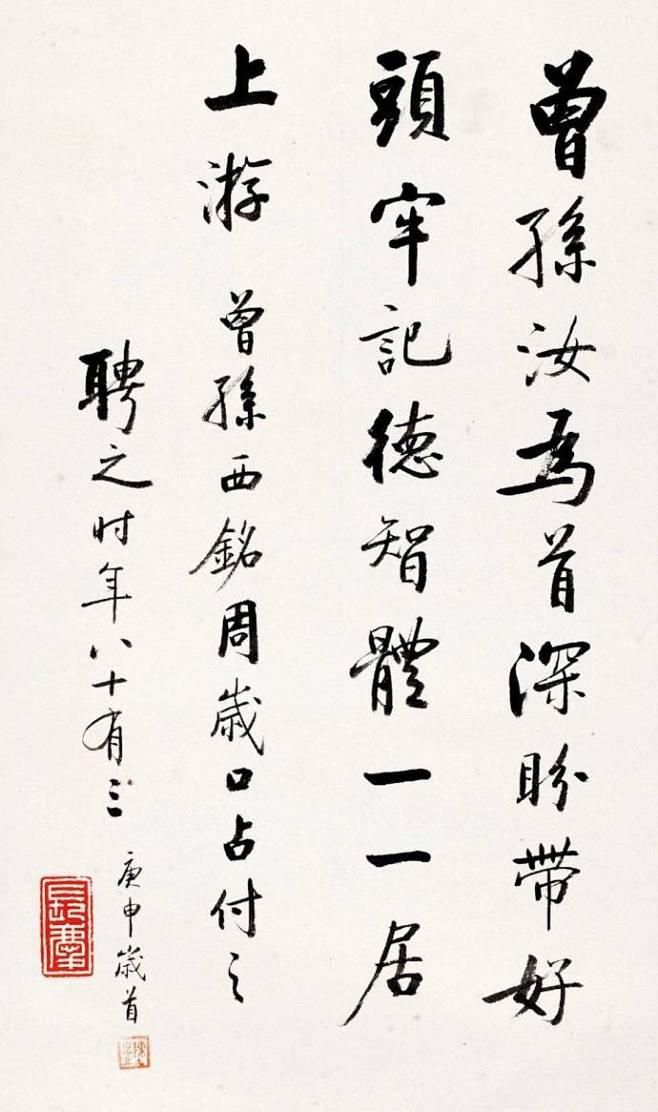 曾孫汝為首深盼帶好
頭牢記德智體一一居
上游 曾孫西銘周歲口占付之
聘之时年八十有三
庚申歲首